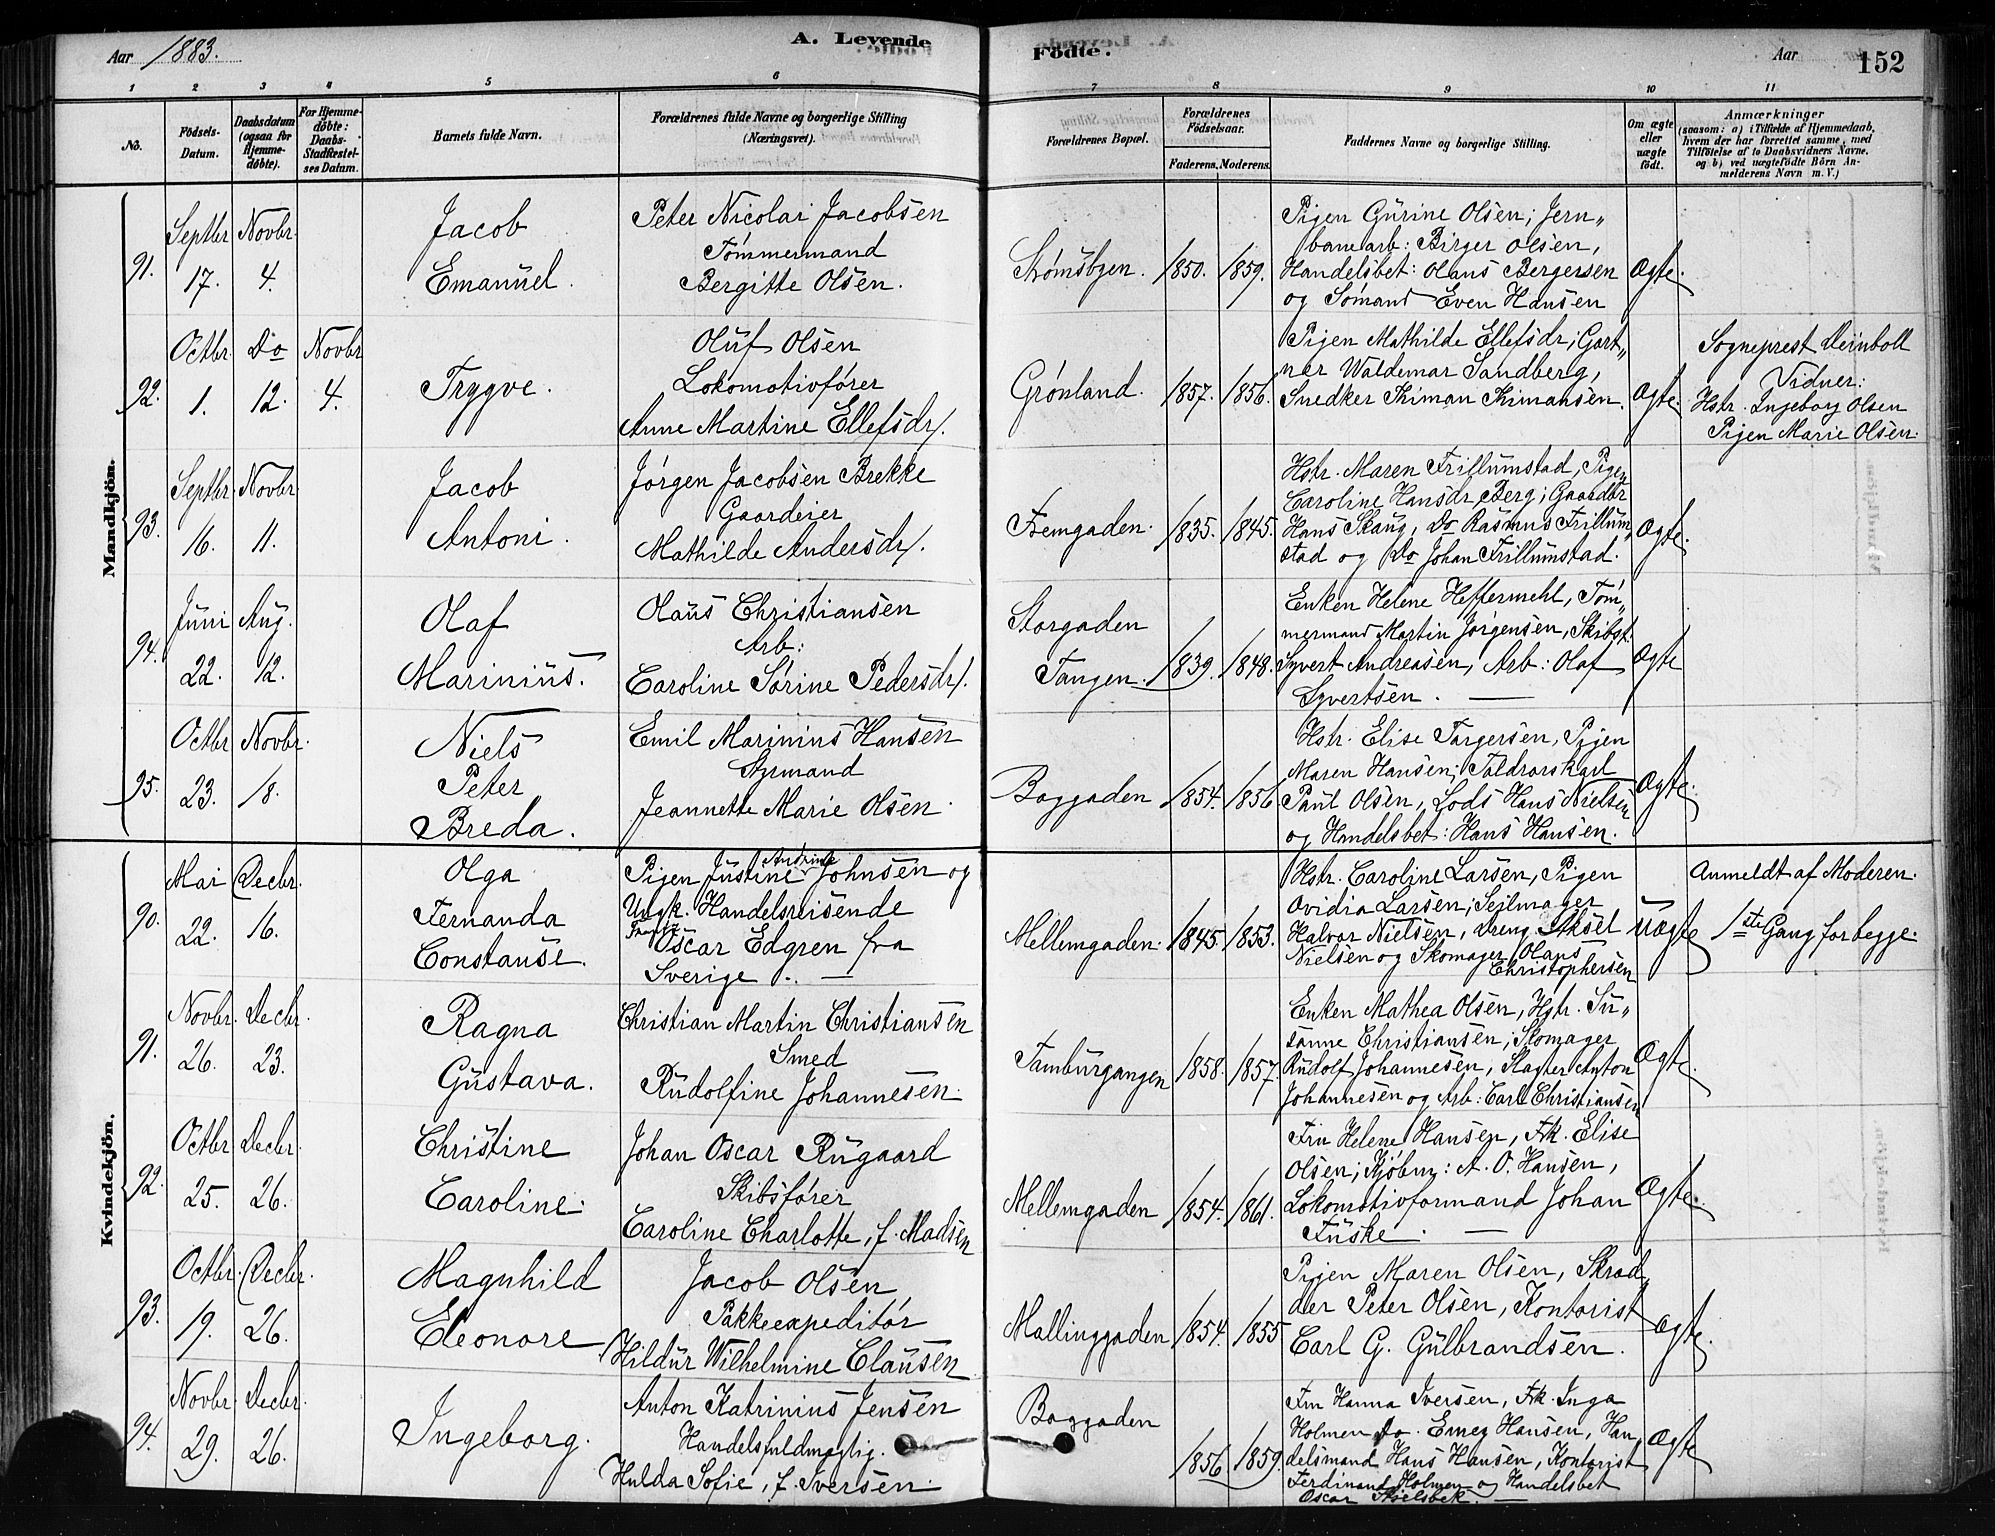 Aar 1883.
A. Levende
Födte.
Aar
152
1 2 3 4 5 6 7 8 9 10 11
No.
Födsels-
Datum.
Daabsdatum
(ogsaa för
Hjemme-
döbte).
For Hjemme-
döbte:
Daabs-
Stadfæstel-
ses Datum.
Barnets fulde Navn.
Forældrenes fulde Navne og borgerlige Stilling
(Næringsvei).
Forældrenes Bopæl.
Forældrenes
Födselsaar.
Faderens. Moderens.
Faddernes Navne og borgerlige Stilling.
Om ægte
eller
uægte
födt.
Anmærkninger
(saasom: a) i Tilfælde af Hjemmedaab,
hvem der har forrettet samme, med
Tilföielse af to Daabsvidners Navne,
og b) ved uægtefödte Börn An-
melderens Navn m. V.)
Mandkjön.
91.
Septbr
17.
Novbr.
4.
Jacob
Emanuel.
Peter Nicolai Jacobsen
Tömmermand
Bergitte Olsen.
Strømsbyen.
1850.
1859.
Pigen Gurine Olsen; Jern-
banearb: Birger Olsen,
Handelsbet: Olaus Bergersen
og Sømand Even Hansen
Ægte.
92.
Octbr.
1.
Do
12.
Novbr
4.
Trygve.
Oluf Olsen
Lokomotivfører
Anne Martine Ellefsdr.
Grønland.
1857.
1856.
Pigen Mathilde Ellefsdr; Gart-
ner Waldemar Sandberg,
Snedker Kiman Kimansen.
Ægte.
Sogneprest Deinboll
Vidner:
Hstr. Ingeborg Olsen
Pigen Marie Olsen.
93.
Septbr.
16.
Novbr
11.
Jacob
Antoni.
Jørgen Jacobsen Brekke
Gaardeier
Mathilde Andersdr.
Tremgaden.
1835.
1845.
Hstr. Maren Frillumstad, Pigen
Caroline Hansdr Berg; Gaardbr
Hans Skaug, Do Rasmus Frillum-
stad og Do Johan Frillumstad.
Ægte.
94.
Juni
22.
Aug.
12.
Olaf
Marinius.
Olaus Christiansen
Arb:
Caroline Sørine Pedersdr.
Storgaden
Tangen.
1839.
1848.
Enken Helene Heffermehl, Töm-
mermand Martin Jørgensen, Skibst.
Syvert Andreasen, Arb: Olaf
Syvertsen.
Ægte
95.
Octbr
23.
Novbr.
18.
Niels
Peter
Breda.
Emil Marinius Hansen
Styrmand
Jeannette Marie Olsen.
Baggaden
1854.
1856
Hstr. Elise Torgersen, Pigen
Maren Hansen; Toldrorskarl
Paul Olsen, Lods Hans Nielsen
og Handelsbet: Hans Hansen.
Ægte.
Kvindekjön.
90.
Mai
22.
Decbr.
16.
Olga
Fernanda
Constanse.
Andrine
Pigen Justine Johnsen og
Ungk. Handelsreisende
Frantz
Oscar Edgren fra
Sverige.
Mellemgaden.
1845.
1853.
Hstr. Caroline Larsen, Pigen
Ovidia Larsen; Seilmager
Halvor Nielsen, Dreng Aksel
Nielsen og Skomager Olaus
Christophersen
Uægte
Anmeldt af Moderen.
1ste Gang for begge.
91.
Novbr.
26.
Decbr.
23.
Ragna
Gustava.
Christian Martin Christiansen
Smed
Rudolfine Johannesen.
Tamburgangen
1858.
1857.
Enken Mathea Olsen, Hstr. Su-
sanne Christiansen; Skomager
Rudolf Johannesen, Slagter Anton
Johannesen og Arb: Carl Christiansen
Ægte.
92.
Octbr
25.
Decbr.
26.
Christine
Caroline.
Johan Oscar Rugaard
Skibsfører
Caroline Charlotte, f. Madsen
Mellemgaden
1854.
1861.
Fru Helene Hansen, Frk. Elise
Olsen; Kjøbm: A. O. Hansen,
Lokomotivformand Johan
Fuske.
Ægte.
93.
Octbr.
19.
Decbr.
26.
Magnhild
Eleonore
Jacob Olsen,
Pakkeexpeditör
Hildur Wilhelmine Clausen
Mallinggaden
1854.
1855
Pigen Maren Olsen, Skræd-
der Peter Olsen, Kontorist
Carl G. Gulbrandsen.
Ægte.
94.
Novbr.
29.
Decbr.
26.
Ingeborg.
Anton Katrinius Jensen
Handelsfuldmægtig.
Hulda Sofie, f. Iversen.
Baggaden
1856
1859.
Fru Hanna Iversen, Frk. Inga
Holmen Do. Emey Hansen, Han-
delsmand Hans Hansen, Kontorist
Ferdinand Holmen og Handelsbet
Oscar
Ægte